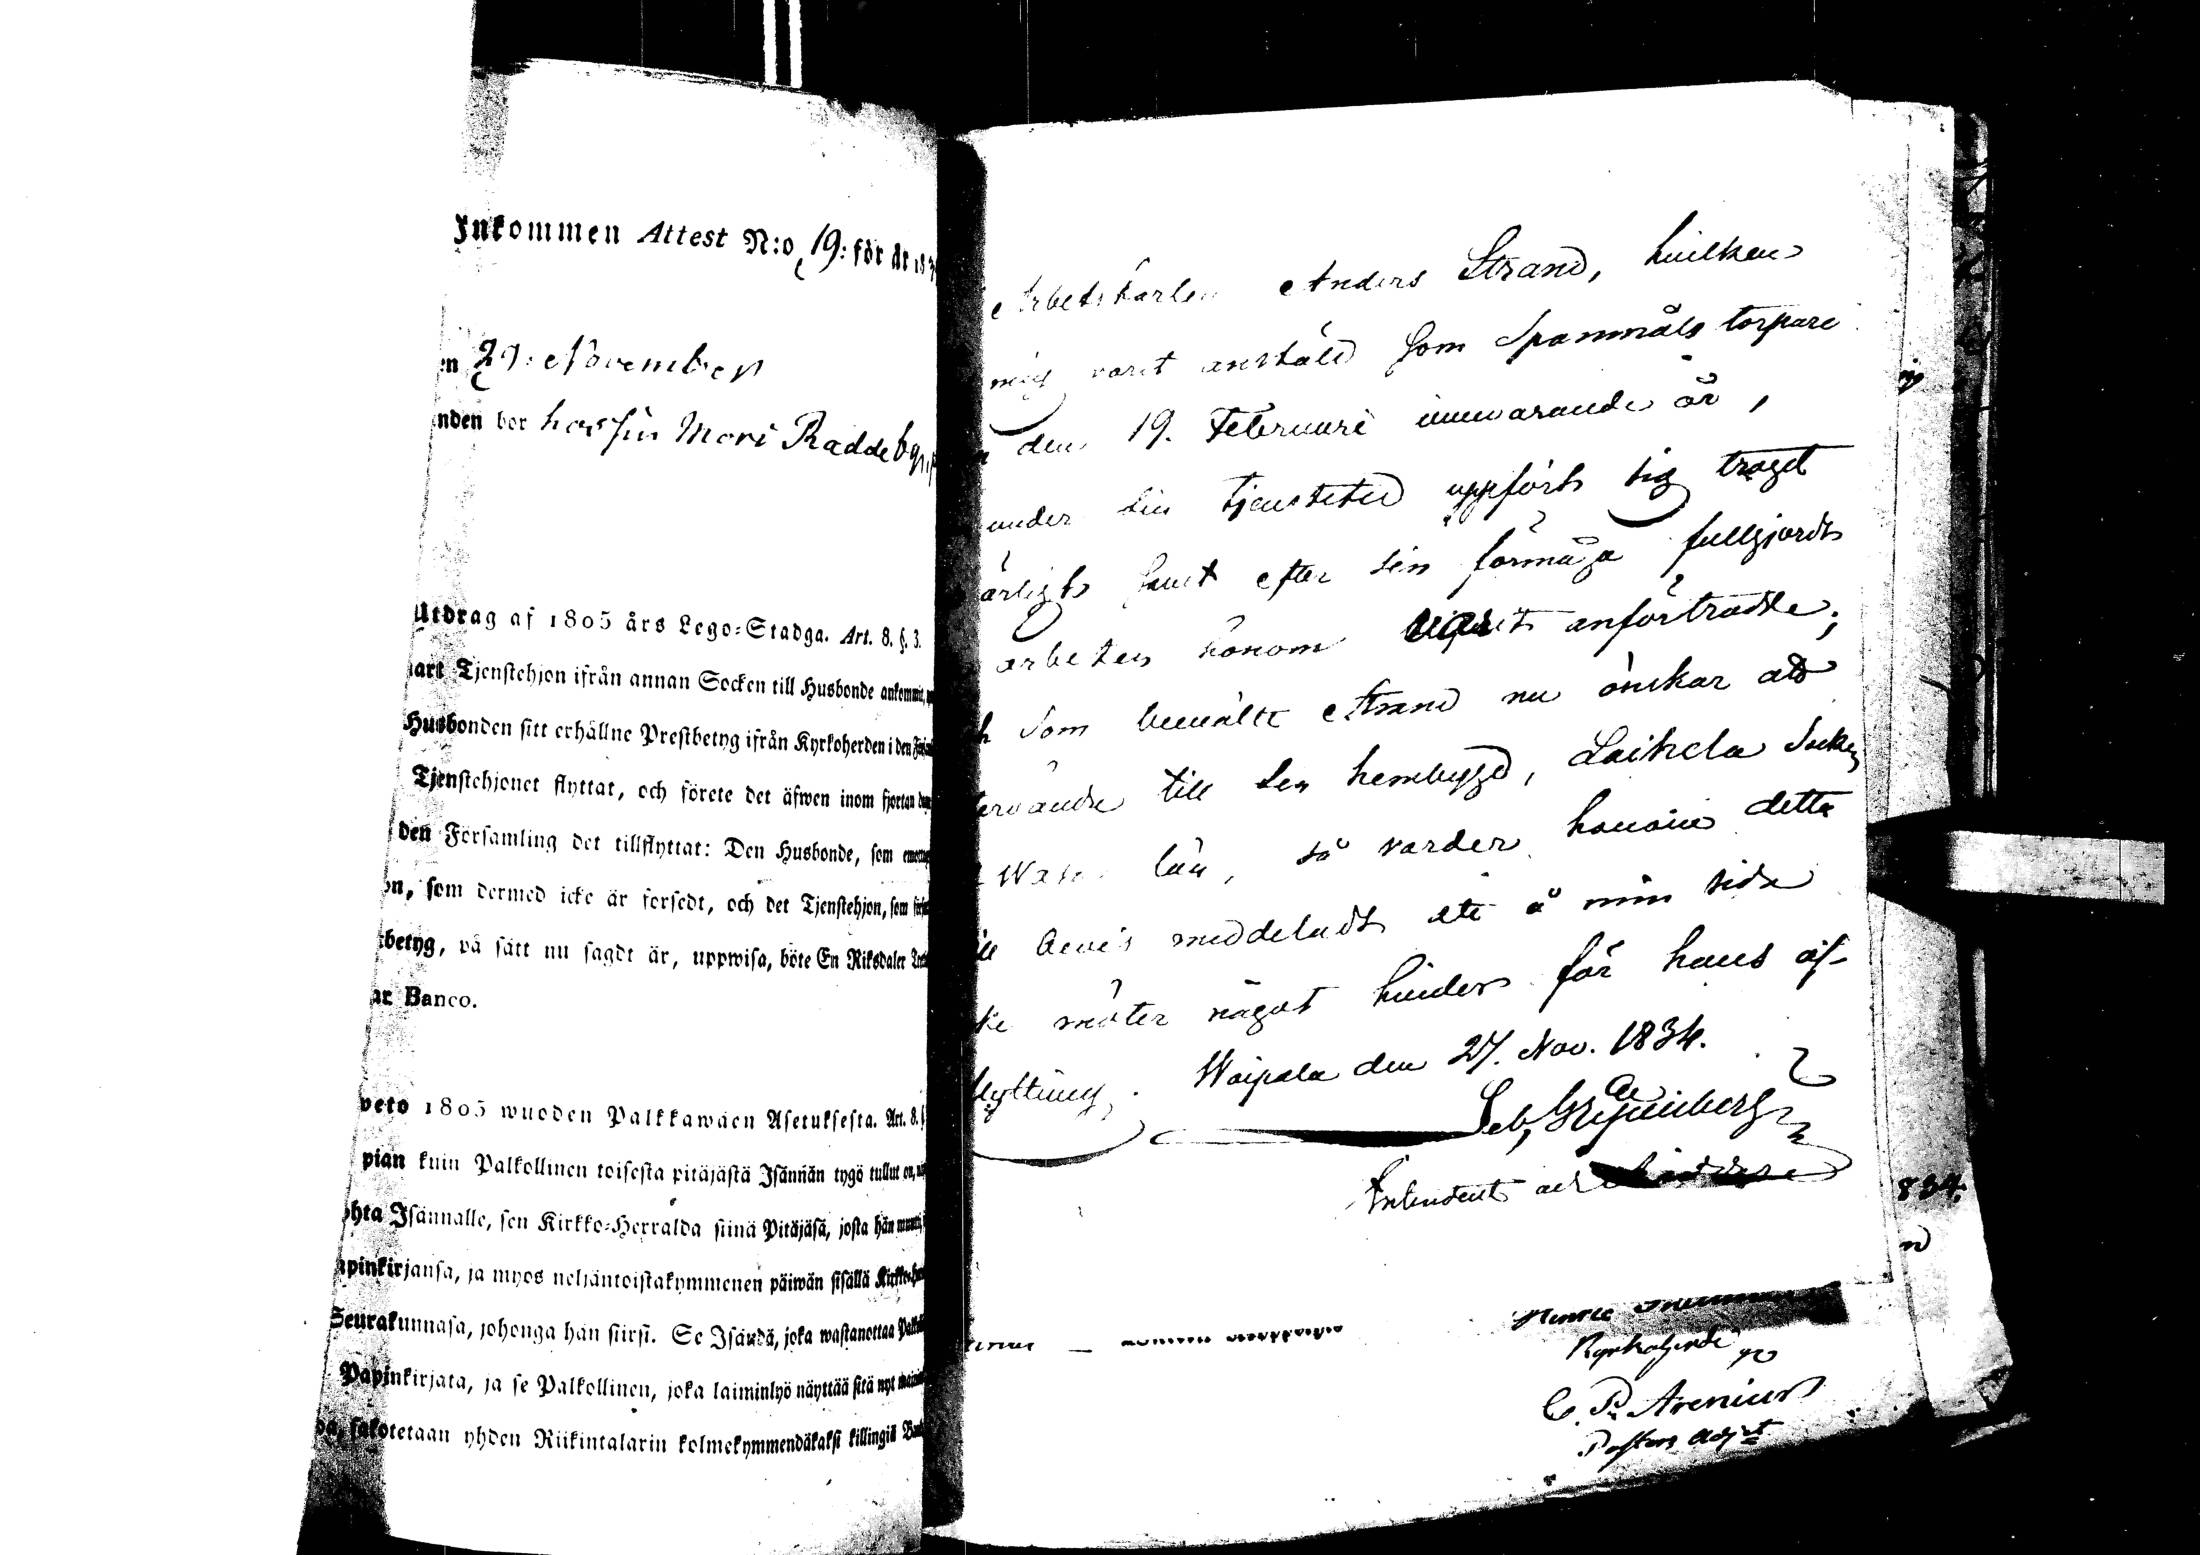 Inkommen Attest N:o 19: för år 183
en 29: November
nden bor hos sin Mor i Raddeby
Utdrag af 1805 års Lego-Stadga. Art. 8. §. 3.
art Tjenstehjon ifrån annan Socken till Husbonde ankommit,
Husbonden sitt erhållne Prestbetyg ifrån Kyrkoherden i den
Tjenstehjonet flyttat, och förete det äfwen inom fjorton
den Församling det tillflyttat: Den Husbonde, som
on, som dermed icke är försedt, och det Tjenstehjon, som
tbetyg, på sätt nu sagdt är, uppwisa, böte En Riksdaler
ar Banco.
weto 1805 wuoden Palkkawäen Asetuksesta. Art. 8.
pian kuin Palkollinen toisesta pitäjästä Isännän tygö tullut on,
ohta Isännälle, sen Kirkko-Herralda siinä Pitäjäsä, josta hän
apinkirjansa, ja myös neljäntoistakymmenen päiwän sisällä
Seurakunnasa, johonga hän siirsi. Se Isändä, joka wastanottaa
Papinkirjata, ja se Palkollinen, joka laiminlyö näyttää sitä nyt
da, sakotetaan yhden Riikintalarin kolmekymmendäkaksi killingiä
Arbetskarlen Anders Strand, hvilken
mig varit anstäld som Spanmåls torpare
den 19. Februari innevarande år,
under sin tjenstetid uppfört sig troget
ärligt samt efter sin förmåga fullgjordt
arbeten honom varit anförtrodde;
h som bemälte Strand nu önskar att
tervända till sin hembygd, Laihela Socken
Wasa län, så varder honom detta
ill bevis meddeladt att å min sida
ke möter något hinder för hans af-
flyttning. Waipala den 27. Nov. 1834.
Seb. Gripenberg
Intendent
834.
Kyrkoherde
C. P. Arenius
Pastors Adjt